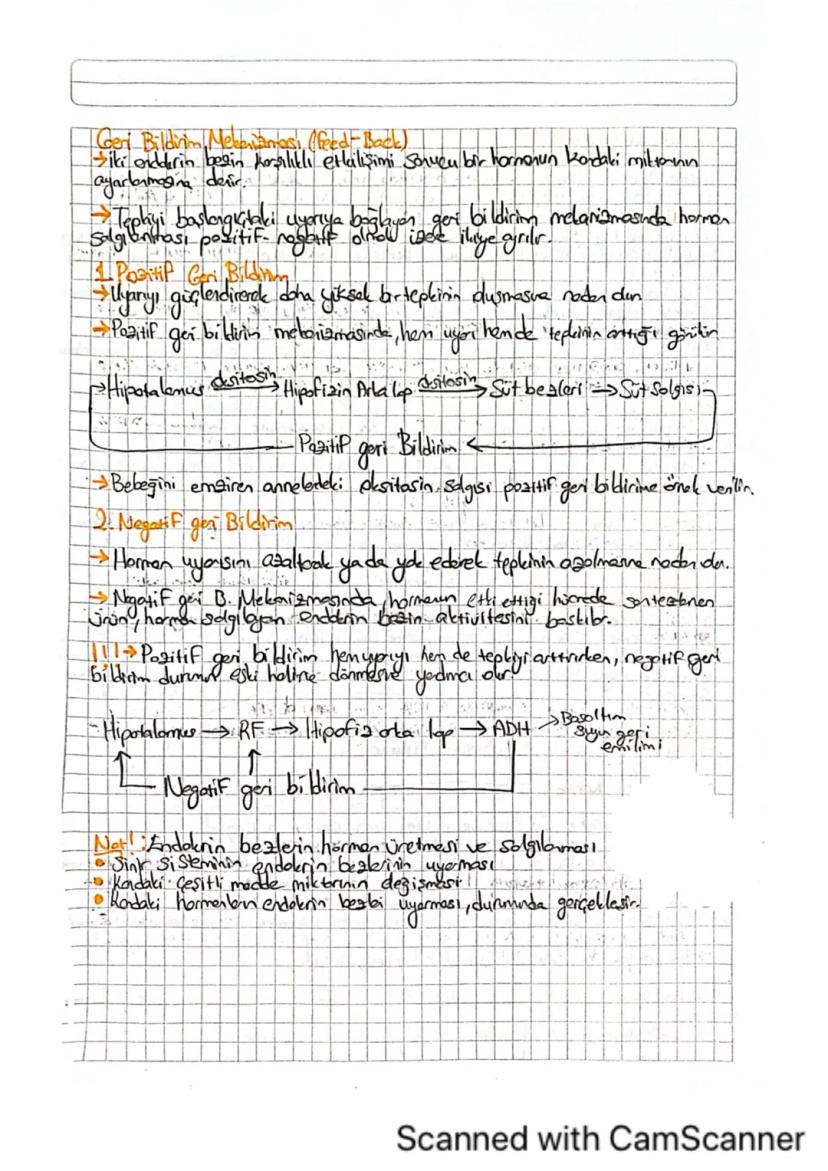 Geri Bildirim Mekanizması (Feed-Back)
→İki endokrin bezin karşılıklı etkileşimi sonucu bir hormonun kandaki miktarının
ayarlanmasına denir.
→Tepkiyi başlangıçtaki uyarıya bağlayan geri bildirim mekanizmasında hormon
salgılanması pozitif-negatif olmak üzere ikiye ayrılır.
1. Pozitif Geri Bildirim
→Uyarıyı güçlendirerek daha yüksek bir tepkinin oluşmasına neden olur
→Pozitif geri bildirim mekanizmasında, hem uyarı hem de tepkinin arttığı görülür
Hipotalamus oksitosin→ Hipofizin Arka lop oksitosin→ Süt bezleri → Süt Salgısı
Pozitif geri Bildirim
→Bebeğini emziren annelerdeki oksitosin salgısı pozitif geri bildirime örnek verilir.
2. Negatif geri Bildirim
→Hormon uyarısını azaltarak ya da yok ederek tepkinin azalmasına neden olur.
→Negatif geri B. Mekanizmasında, hormonun etki ettiği hücrede sentezlenen
ürün, hormon salgılayan endokrin bezin aktivitesini baskılar.
!!!→Pozitif geri bildirim hem uyarıyı hem de tepkiyi arttırırken, negatif geri
bildirim durumun eski haline dönmesine yardımcı olur
-Hipotalamus → RF → Hipofiz arka lop → ADH → Boşaltım
suyun geri
emilimi
Negatif geri bildirim
Not!: Endokrin bezlerin hormon üretmesi ve salgılanması
• Sinir Sisteminin endokrin bezlerinin uyarması
• Kandaki çeşitli madde miktarının değişmesi
• Kandaki hormonların endokrin bezleri uyarması, durumunda gerçekleşir.
Scanned with CamScanner